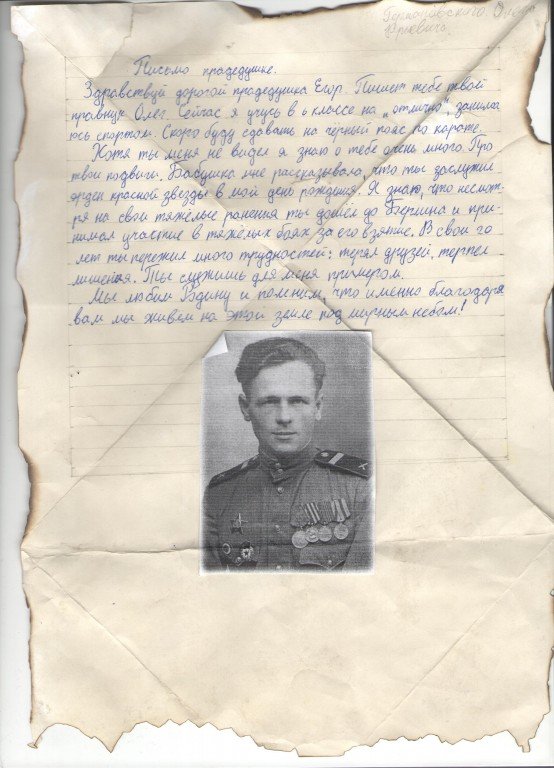 Олега
Юрьевича
Письмо прадедушке.
Здравствуй дорогой прадедушка Егор. Пишет тебе твой
правнук Олег. Сейчас я учусь в 6 классе на „отлично", занима
юсь спортом. Скоро буду сдавать на чёрный пояс по каратэ.
Хотя ты меня не видел я знаю о тебе очень много. Про
твои подвиги. Бабушка мне рассказывала, что ты заслужил
орден красной звезды в мой день рождения. Я знаю, что несмот-
ря на свои тяжёлые ранения ты дошёл до Берлина и при-
нимал участие в тяжёлых боях за его взятие. В свои 20
лет ты пережил много трудностей: терял друзей, терпел
лишения. Ты служишь для меня примером.
Мы любим Родину и помним, что именно благодаря
вам мы живем на этой земле под мирным небом!